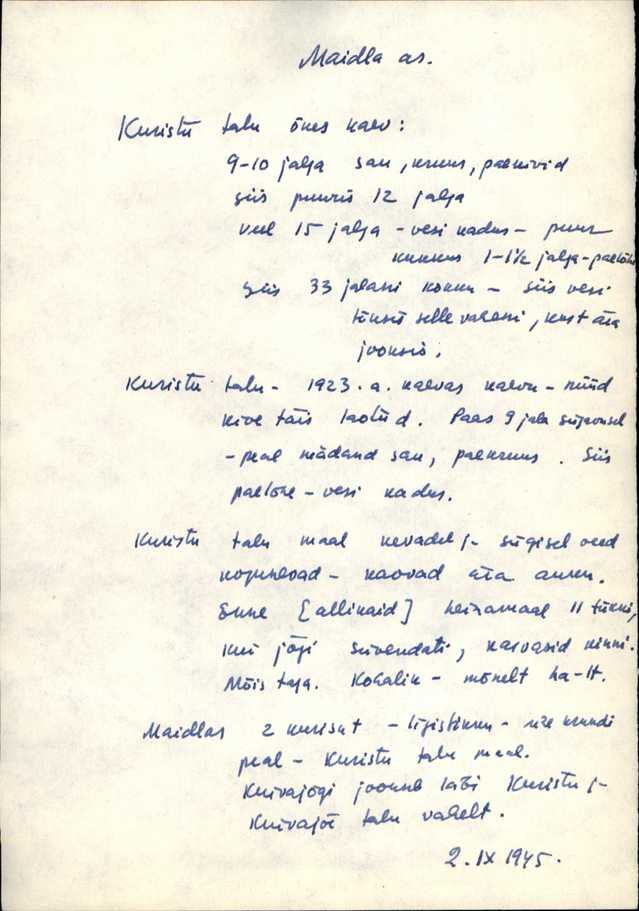 Maidla as.
Kuristu talu õues kaev:
9-10 jalga sau, kruus, paekivid
siis puuris 12 jalga
veel 15 jalga - vesi kadus - puur
kukkus 1-1½ jalga - paelõhe
Siis 33 jalani kokku - siis vesi
tõusis selle vaheni, kust ära
jooksis.
Kuristu talu - 1923. a. kaevas kaevu - nüüd
kive täis laotud. Paas 9 jala sügavusel
- peal mädand sau, paekruus. Siis
paelõhe - vesi kadus.
Kuristu talu maal kevadel j- sügisel veed
kogunevad - kaovad ära auku.
Enne [allikaid] heinamaal 11 tükki,
kui jõgi süvendati, kasvasid kinni.
Mõis taga. Kohalik - mõnelt ha-lt.
Maidlas 2 kurisut - - ühe krundi
peal - Kuristu talu maal.
Kuivajõgi jookseb läbi Kuristu j-
Kuivajõe talu vahelt.
2. IX 1945.